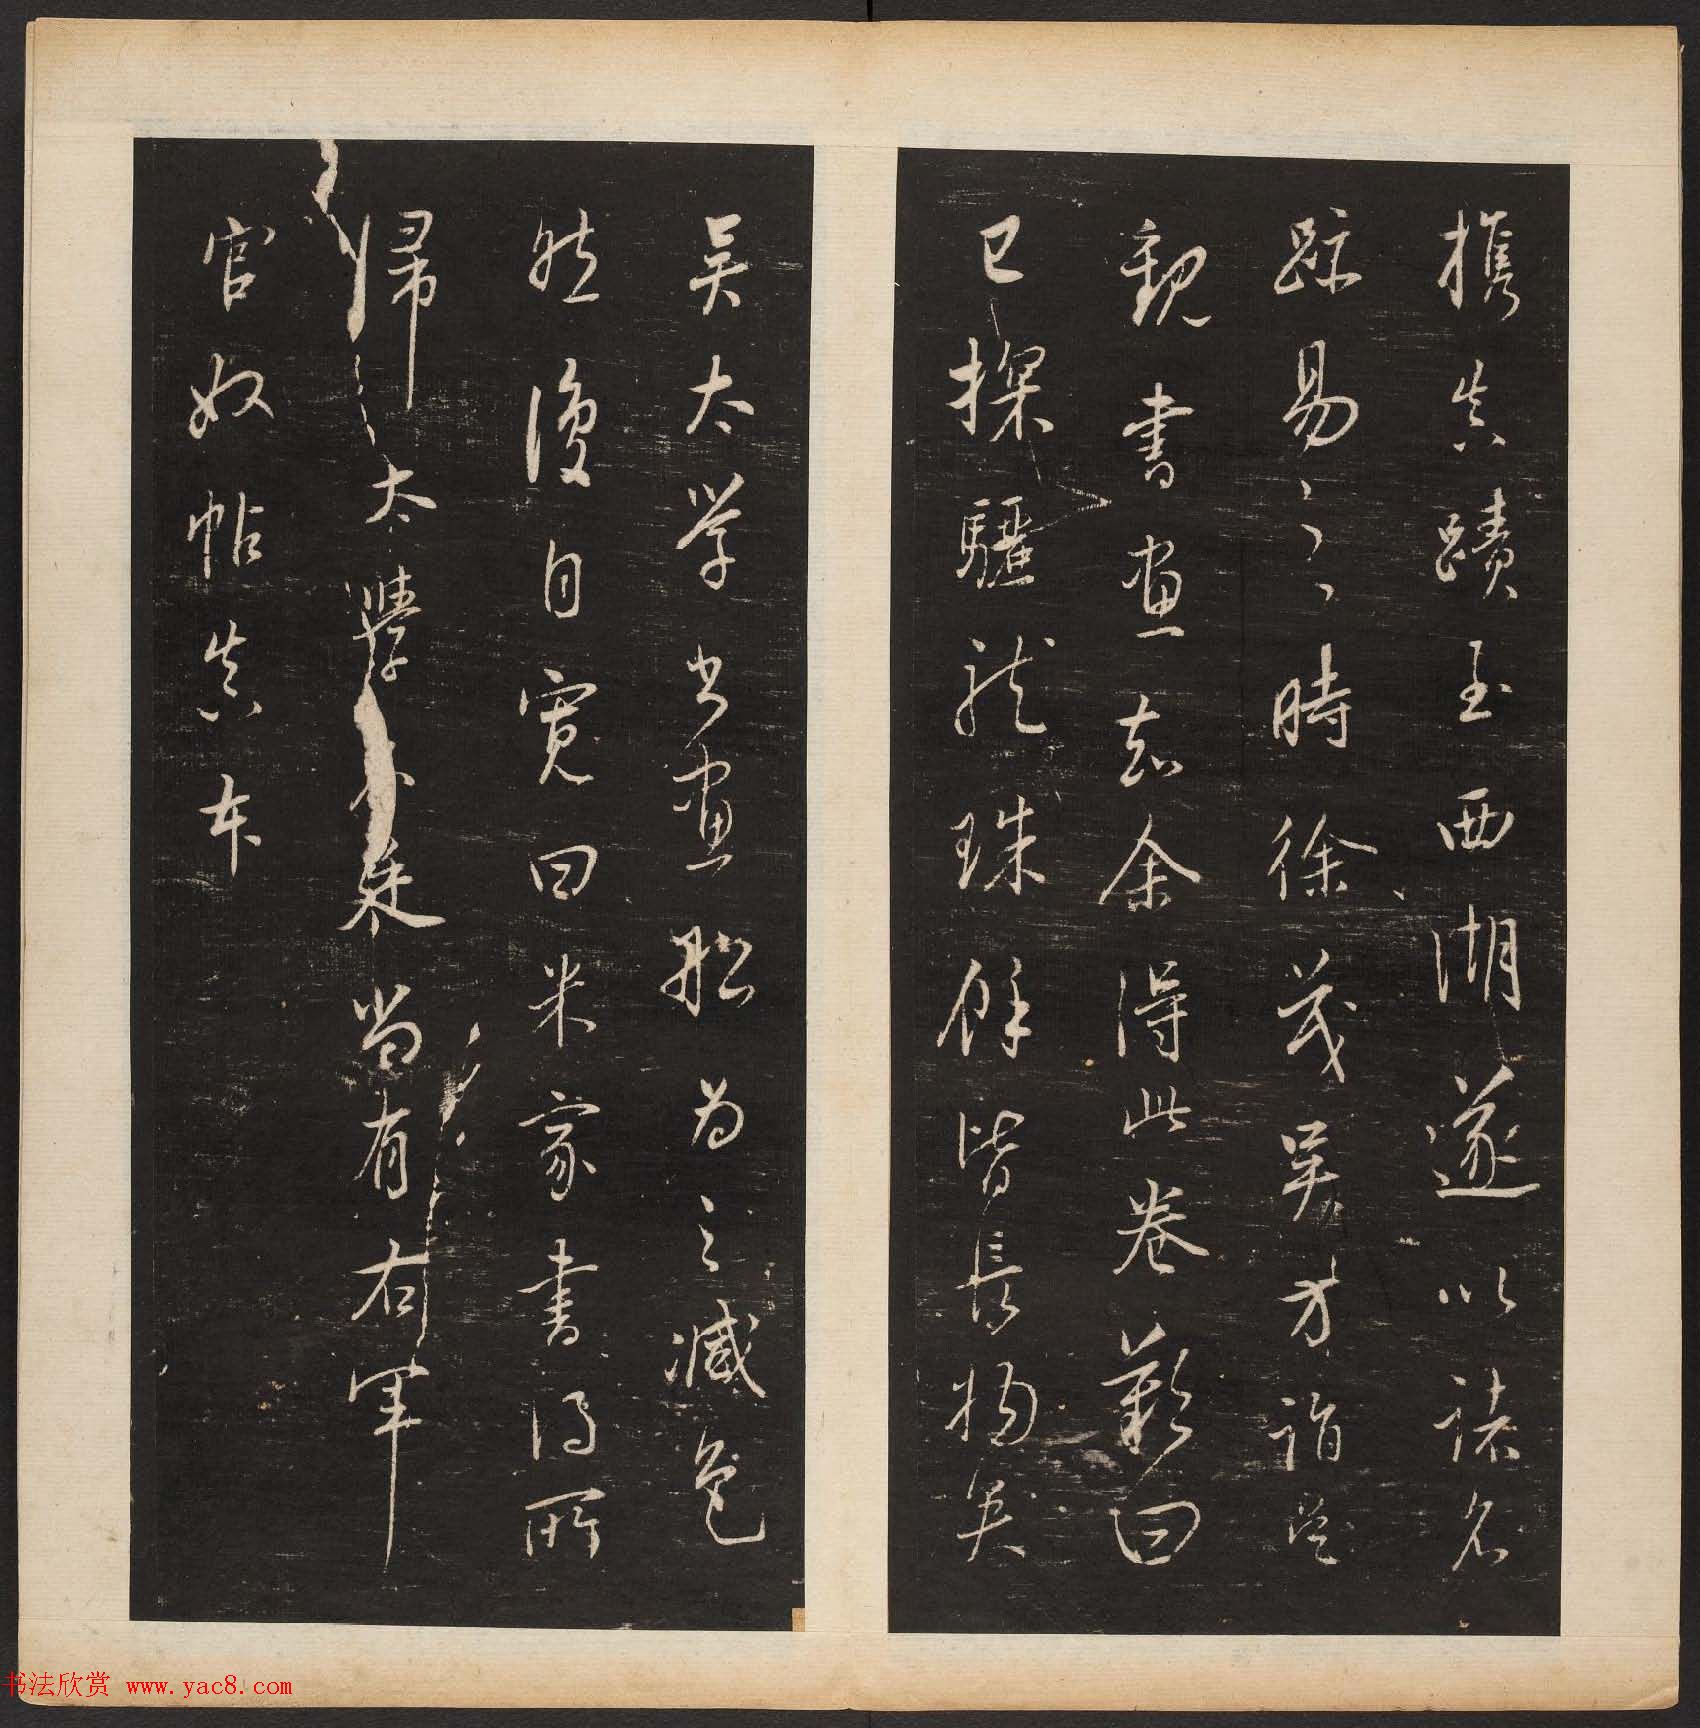 攜真蹟至西湖遂以諸名
跡易之時徐茂吳方詣吳
觀書畫知余得此卷歎曰
已探驪龍珠餘皆長物矣
吳太學書畫船為之減色
然後自寬曰米家書得所
歸太學名廷尚有右軍
官奴帖真本
书法欣赏 www.yac8.com